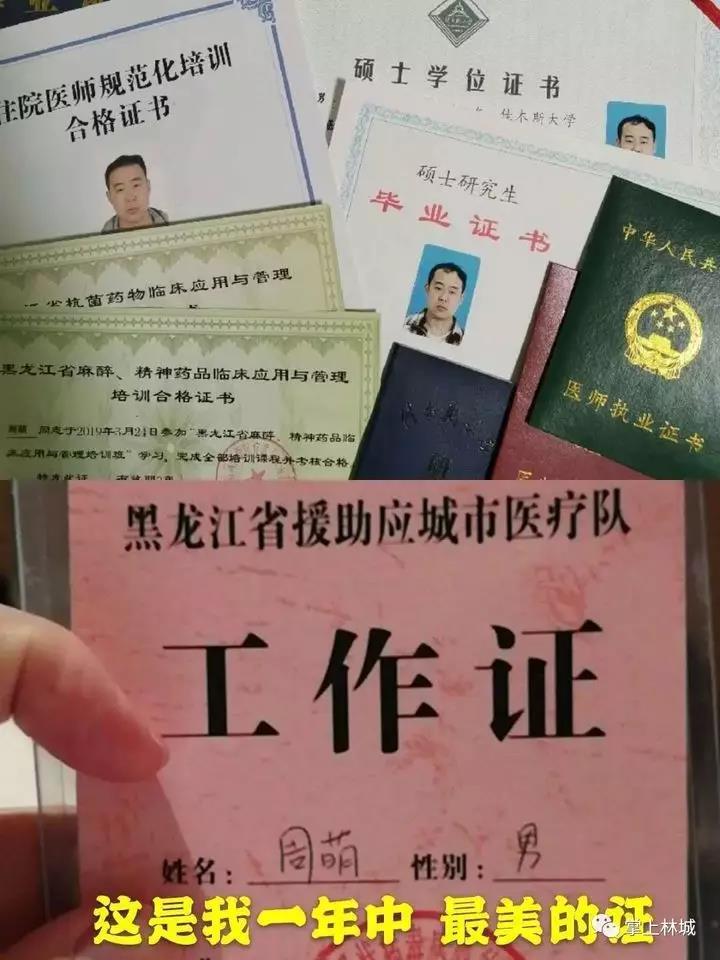 住院医师规范化培训
合格证书
硕士学位证书
男
佳木斯大学
硕士研究生
毕业证书
中华人民共
医师执业证书
江省抗菌药物临床应用与管理
黑龙江省麻醉、精神药品临床应用与管理
培训合格证书
周萌 同志于2019年3月24日参加“黑龙江省麻醉、精神药品临
床应用与管理培训班”学习,完成全部培训课程并考核合格
黑龙江省援助应城市医疗队
工作证
姓名:周萌 性别:男
这是我一年中 最美的证
掌上林城